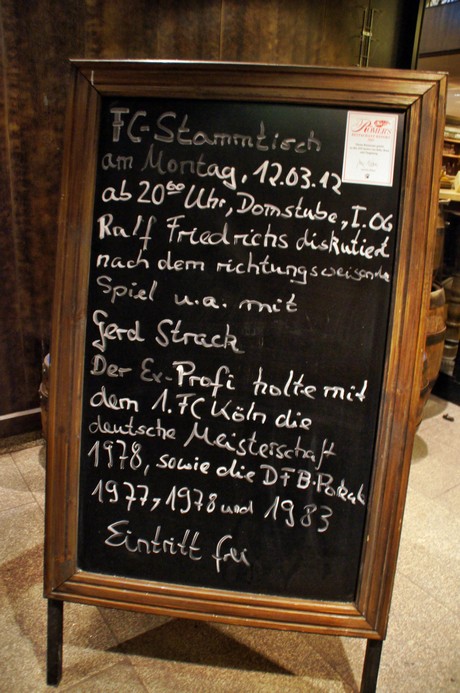 FC-Stammtisch
am Montag, 12.03.12
ab 20⁰⁰ Uhr, Domstube, I.OG
Ralf Friedrichs diskutiert
nach dem richtungsweisenden
Spiel u.a. mit
Gerd Strack
Der Ex-Profi holte mit
dem 1. FC Köln die
deutsche Meisterschaft
1978, sowie die DFB-Pokale
1977, 1978 und 1983
Eintritt frei
RÖMER'S